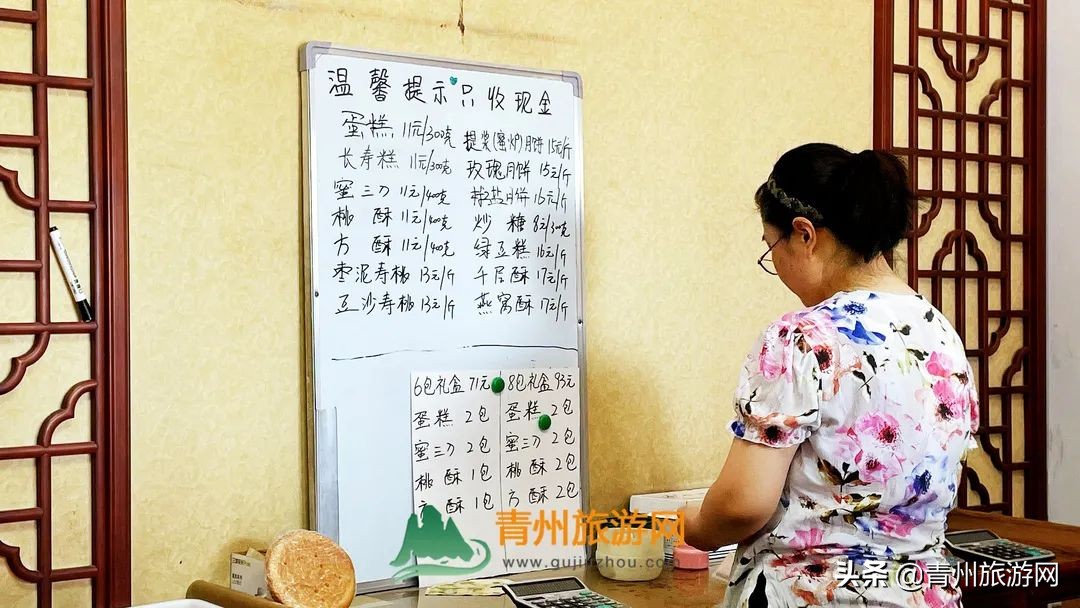 温馨提示只收现金
蛋糕 11元/300克
长寿糕 11元/300克
蜜三刀 11元/400克
桃酥 11元/400克
方酥 11元/400克
枣泥寿桃 13元/斤
豆沙寿桃 13元/斤
提浆(蜜炉)月饼 15元/斤
玫瑰月饼 15元/斤
椒盐月饼 16元/斤
炒糖 8元/300克
绿豆糕 16元/斤
千层酥 17元/斤
燕窝酥 17元/斤
6包礼盒 71元
蛋糕 2包
蜜三刀 2包
桃酥 1包
方酥 1包
8包礼盒 93元
蛋糕 2包
蜜三刀 2包
桃酥 2包
方酥 2包
青州旅游网
www.qujinzhou.com
头条 @青州旅游网